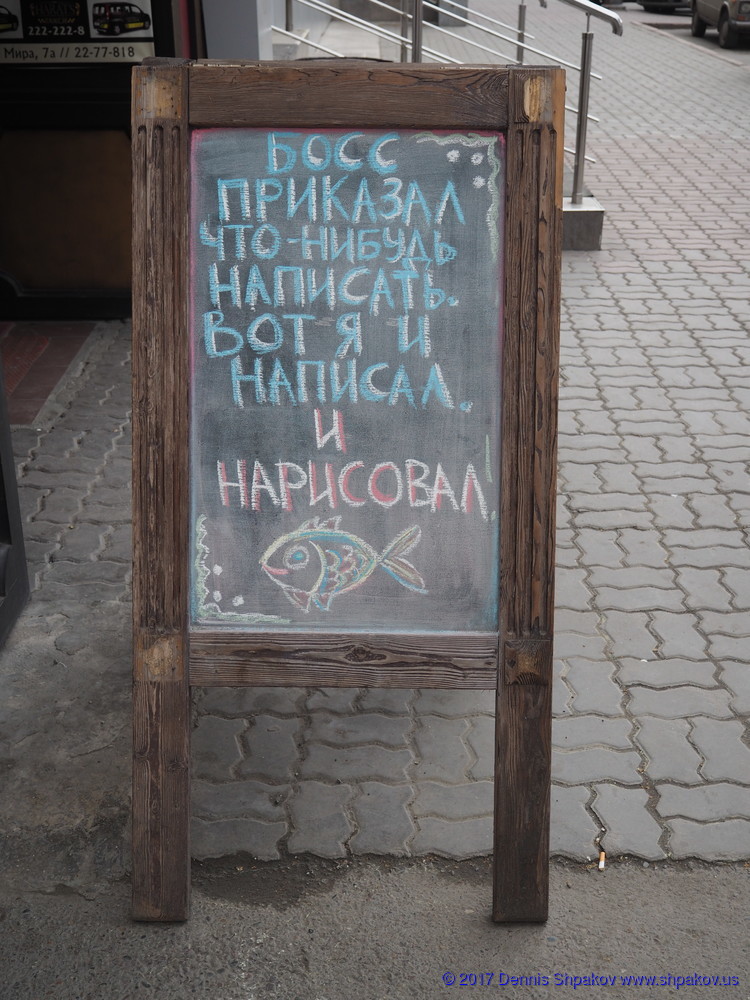 222-222-8
Мира, 7а // 22-77-818
БОСС
ПРИКАЗАЛ
ЧТО-НИБУДЬ
НАПИСАТЬ.
ВОТ Я И
НАПИСАЛ.
И
НАРИСОВАЛ
© 2017 Dennis Shpakov www.shpakov.us